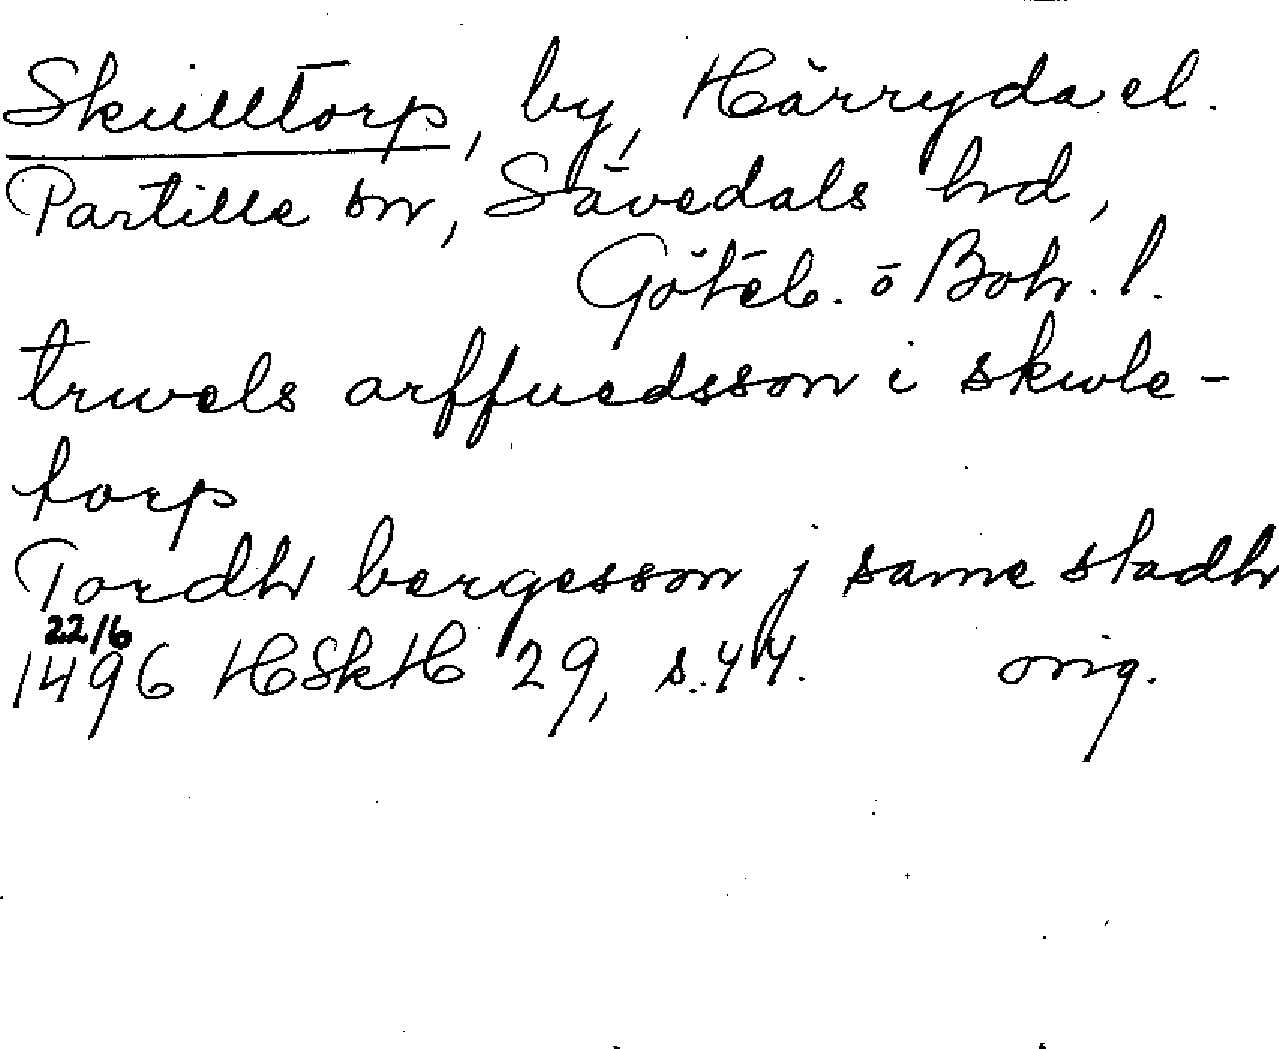 Skulltorp, by, Härryda el.
Partille sn, Sävedals hrd,
Göteb. o Boh. l.
truvels arffuedsson i skule-
torp
Tordh bergesson j same stadh
22/6
1496 HSkH 29, s. 44. orig.